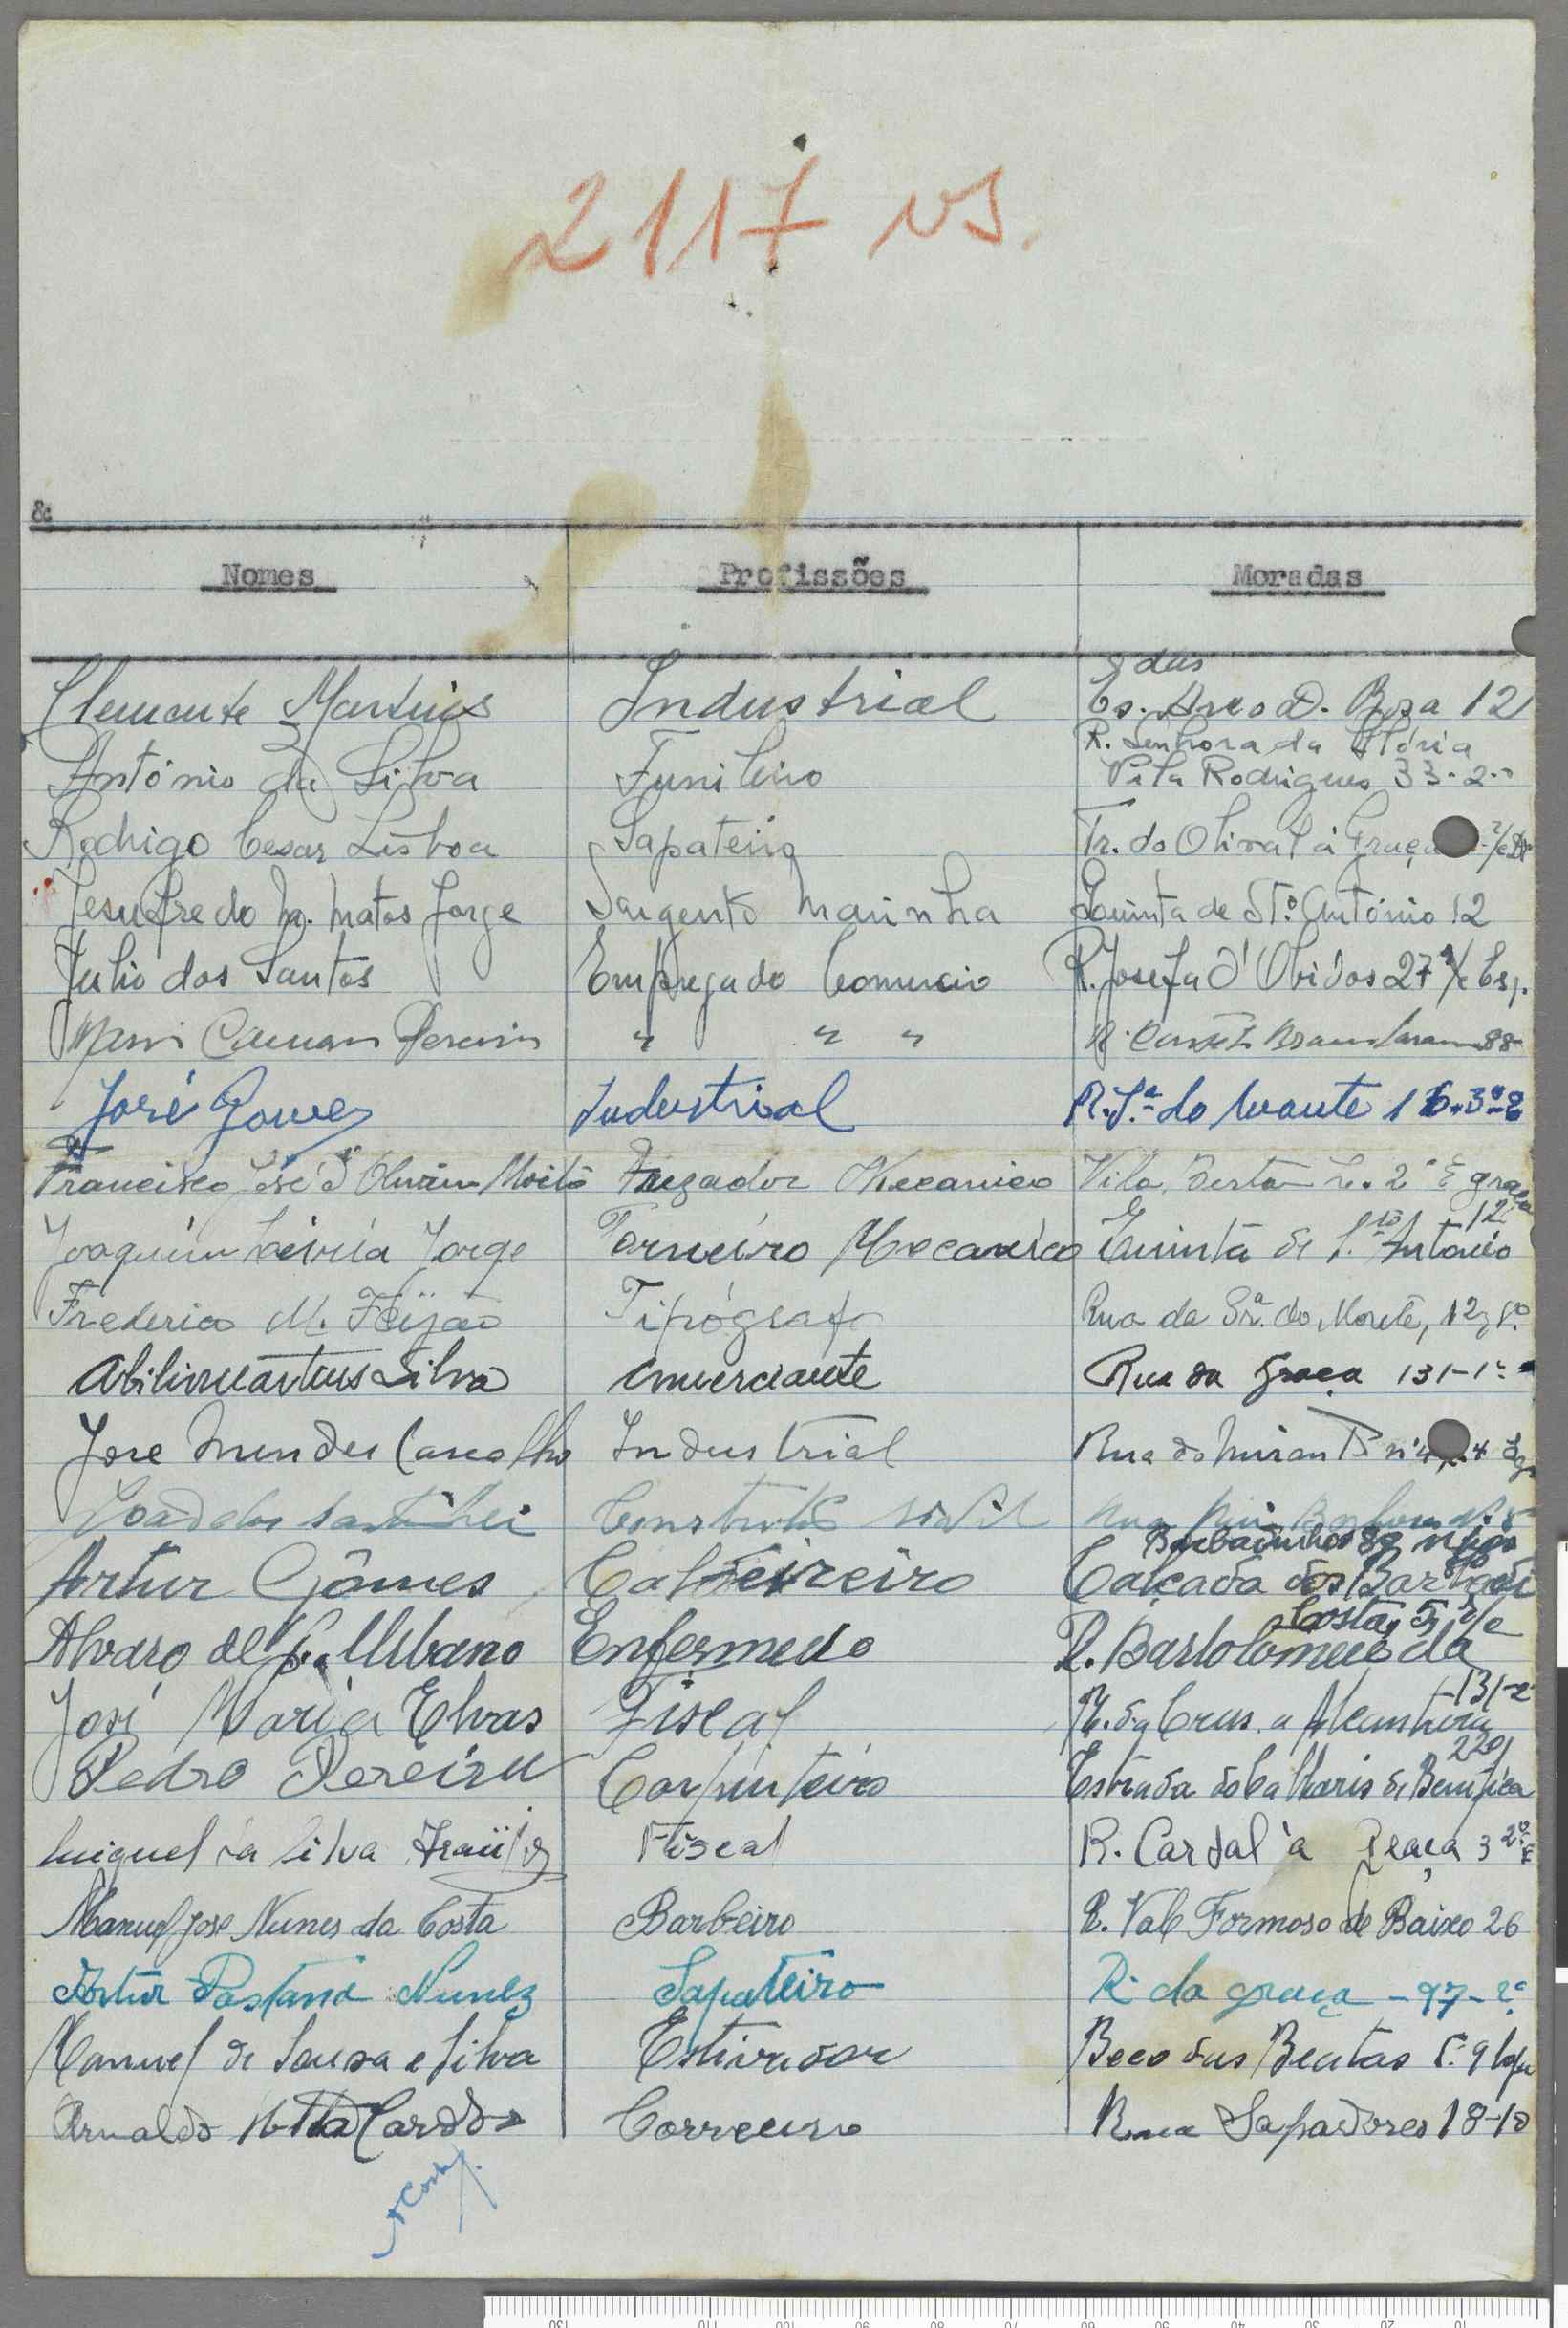 2117 NS.
&
Nomes Profissões Moradas
Clemente Martins Industrial
das
Es. Arco D. Rosa 12
R. Senhora da Glória
António da Silva Funileiro Vila Rodrigues 33-2º
Rodrigo Cesar Lisboa Sapateiro Tr. do Olival á Graça
Jesufredo M. Matos Jorge Sargento Marinha Quinta de Stº. António 12
Julio dos Santos Empregado Comercio R. Josefa d'Obidos 27 r/c Esq.
" " " 88
José Gomes Industrial R. Sª. do Monte 16-3º-E
Francisco José d'Oliveira Frezador Mecanico Vila Berta Graça
12
Joaquim Leiria Jorge Torneiro Mecanico Quinta de S.to António
Frederico M. Feijão Tipógrafo Rua da Srª. do Monte, 12,
Abilio Martins Silva Comerciante Rua da Graça 131-1º
José Mendes Carvalho Industrial Rua do Mirante nº
João dos Santos Construtor Sivil Rua
Barbadinhos
Artur Gômes Caldeireiro Calçada dos
Costa, 5, r/c
Alvaro de Urbano Enfermeiro R. Bartolomeu da
131-2º
José Maria Elvas Fiscal R. da Crus. a Alcantara
220
Pedro Pereira Carpinteiro Estrada do Calharis de Benfica
Miguel da Silva Fiscal R. Cardal à Graça 3 2º E
Manuel José Nunes da Costa Barbeiro R. Vale Formoso de Baixo 26
Artur Pastana Nunez Sapateiro R. da graça - 97-2º
Manuel de Sousa e Silva Estivador Beco das Beatas
Arnaldo Motta Cardoso Correeiro Rua Sapadores 18-1º